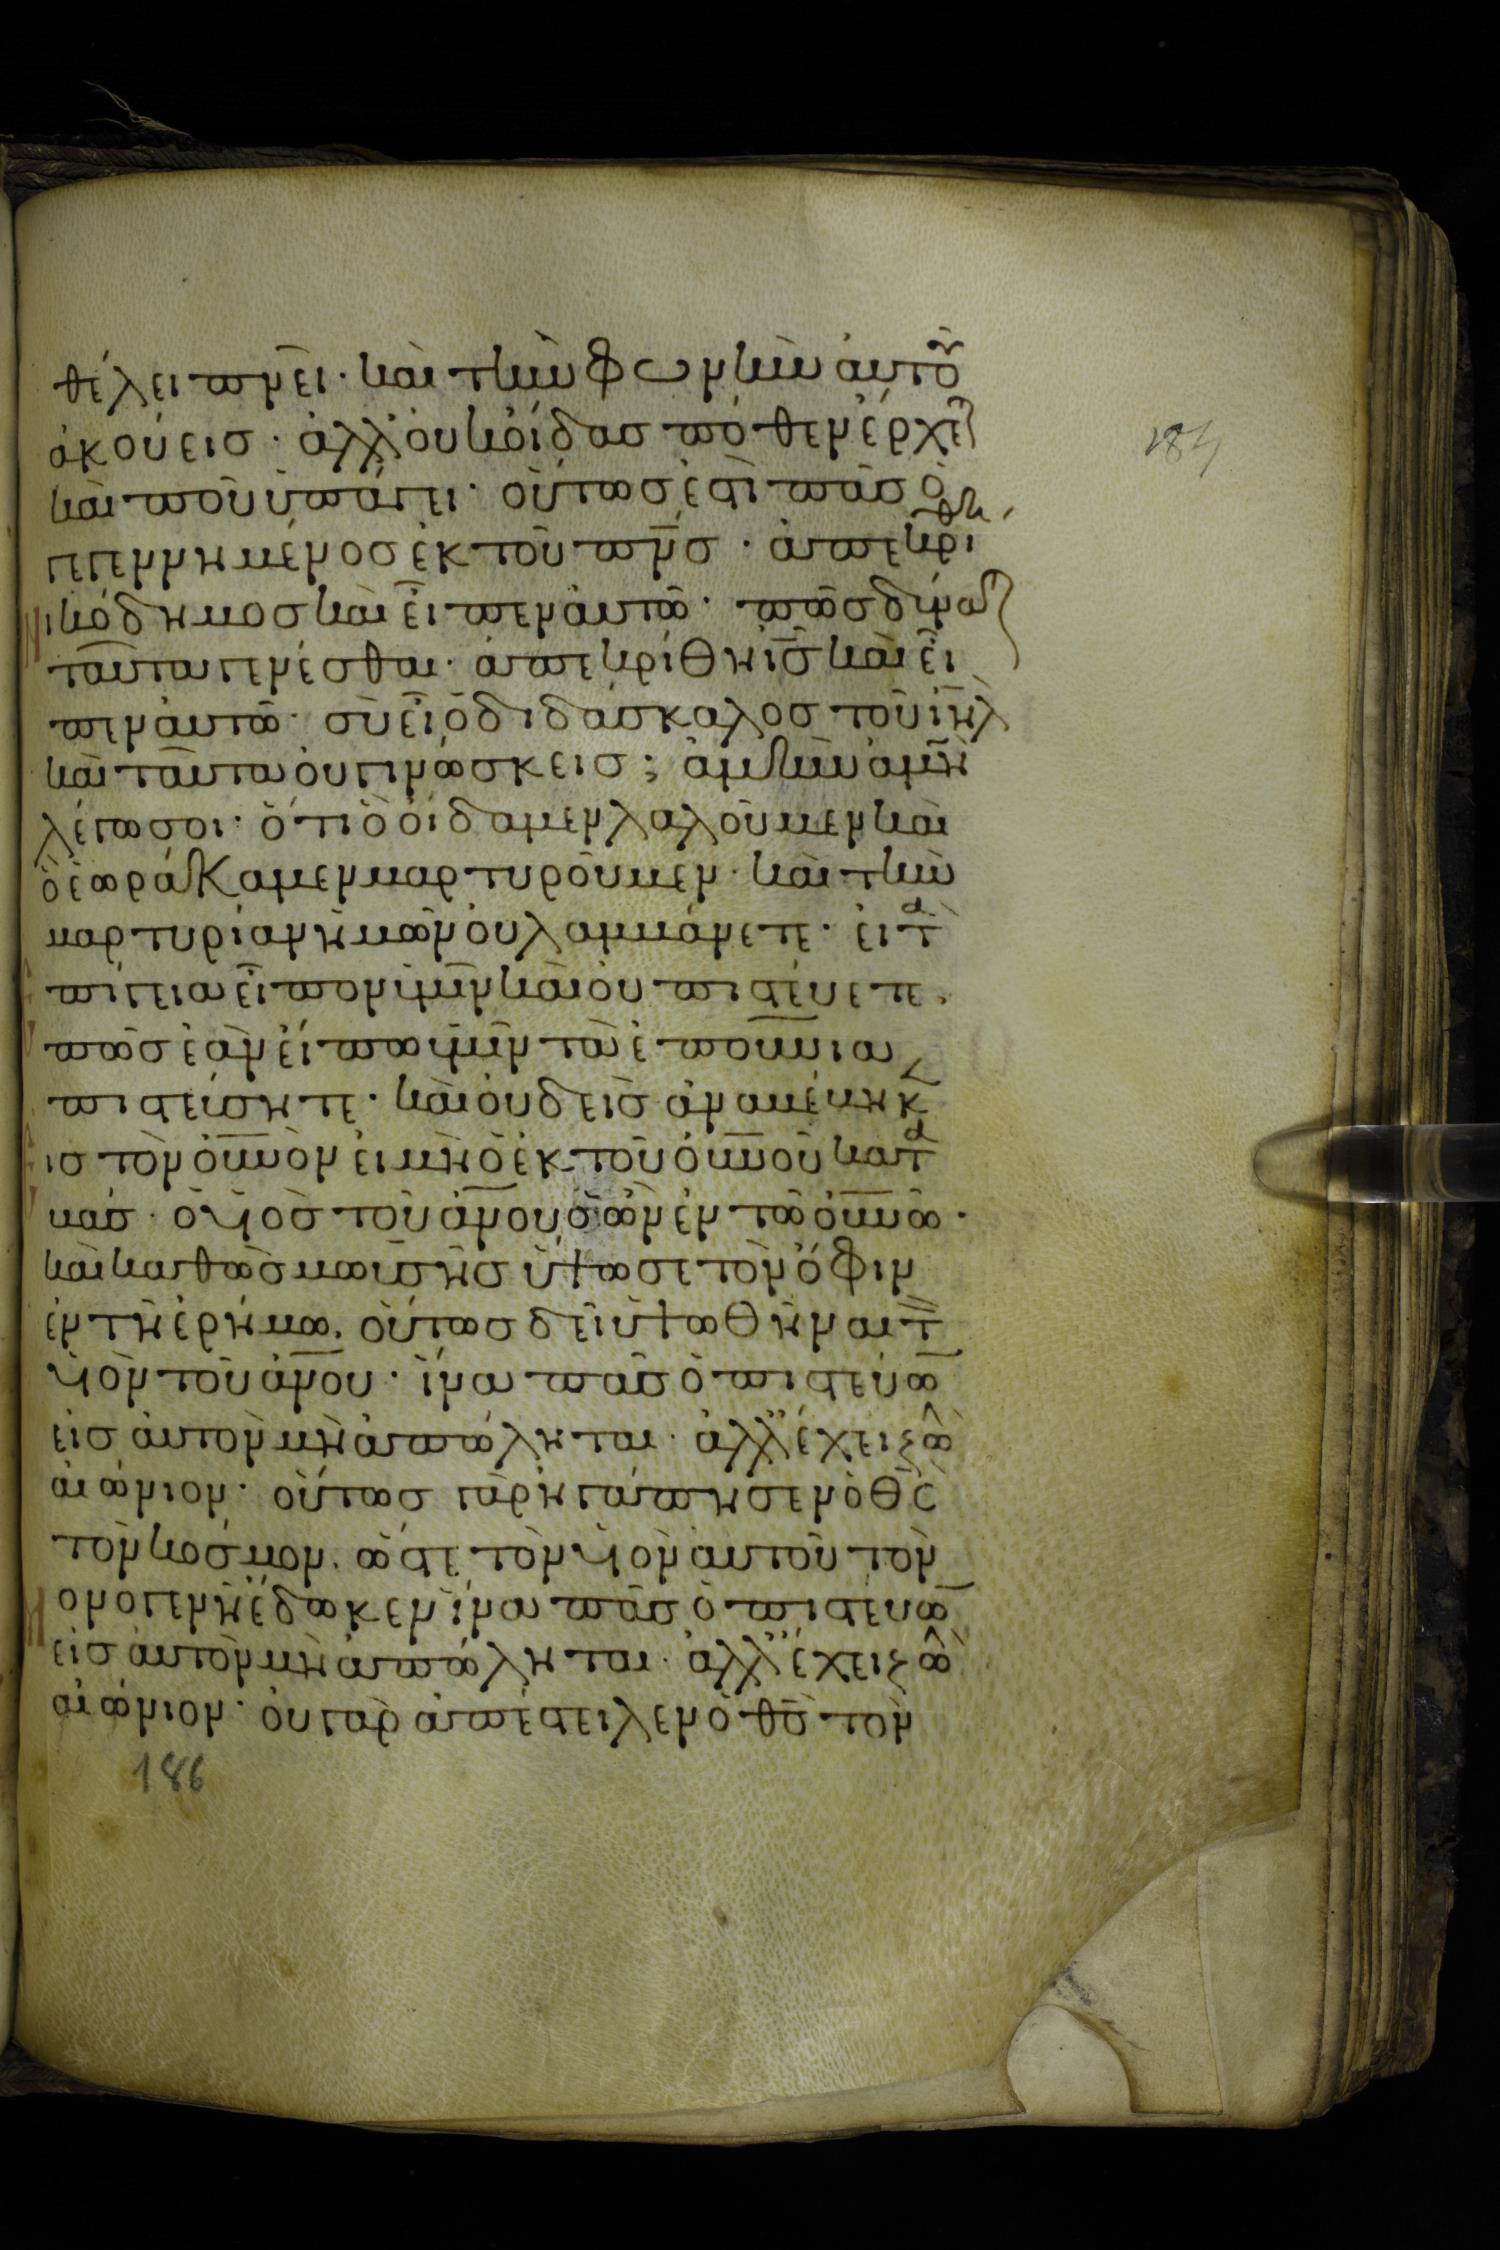 θέλει πνεῖ· καὶ τὴν φωνὴν ἀυτοῦ
ἀκούεις· ἀλλ' ουκ οίδας πόθεν έρχεται
καὶ ποῦ ὑπάγει· οὕτως ἐστὶ πᾶς ὁ
γεγεννημένος ἐκ τοῦ πνς· ἀπεκρίθη
νικόδημος καὶ εἶπεν ἀυτῶ· πῶς δύναται
ταῦτα γενέσθαι· ἀπεκρίθη ις καὶ εἶ
πεν ἀυτῶ· σὺ εἶ ὁ διδάσκαλος τοῦ ιηλ
καὶ ταῦτα ου γινώσκεις; ἀμὴν ἀμὴν
λέγω σοι· ὅτι ὃ οίδαμεν λαλοῦμεν καὶ
ὃ ἑωράκαμεν μαρτυροῦμεν· καὶ τὴν
μαρτυρίαν ἡμῶν ου λαμβάνετε· ει τὰ
επίγεια εἶπον ὑμῖν καὶ ου πιστεύετε·
πῶς ἐὰν είπω ὑμῖν τὰ επουνια
πιστεύσητε· καὶ ουδεὶς ἀναβέβηκεν
εις τὸν ουνον ει μὴ ὁ ἐκ τοῦ ουνου κατα
βάς· ὁ υιος τοῦ ανου ὁ ὢν ἐν τῶ ουνω·
καὶ καθὼς μωυσῆς ὕψωσε τὸν όφιν
ἐν τῆ ἐρήμω· οὕτως δεῖ ὑψωθῆναι τὸν
υιον τοῦ ανου· ἵνα πᾶς ὁ πιστεύων
εις ἀυτὸν μὴ ἀπόληται· ἀλλ' έχει ζωὴν
αιώνιον· οὕτως γὰρ ἠγάπησεν ὁ θς
τὸν κόσμον· ὥστε τὸν υιον ἀυτοῦ τὸν
μονογενῆ έδωκεν ἵνα πᾶς ὁ πιστεύων
εις ἀυτὸν μὴ ἀπόληται· ἀλλ' έχει ζωὴν
αιώνιον· ου γὰρ ἀπέστειλεν ὁ θς τὸν
186